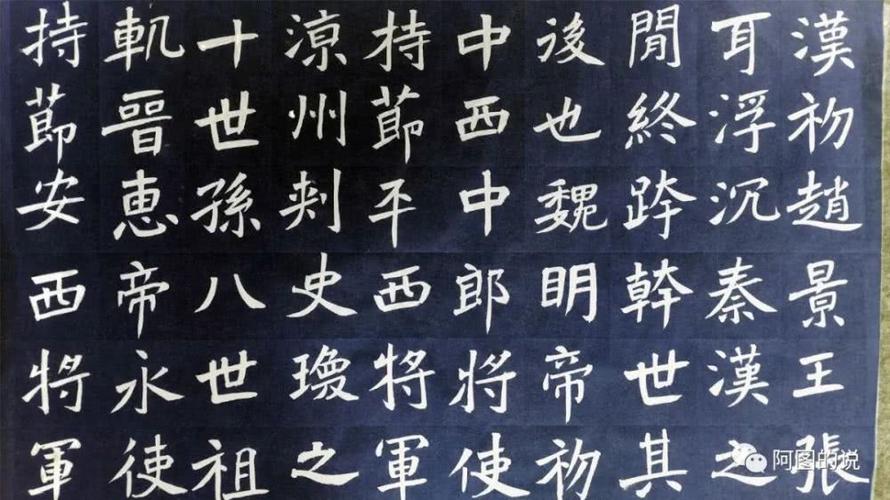 漢初趙景王張
耳浮沉秦漢之
閒終跨幹世其
後也魏明帝初
中西中郎將使
持節平西將軍
涼州刾史瓊之
十世孫八世祖
軌晉惠帝永使
持節安西將軍
阿图的说